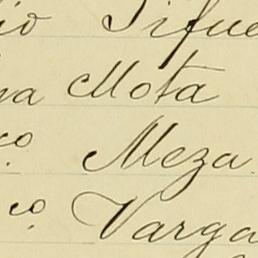 io Sifue
na Mota
co. Meza
co. Varga